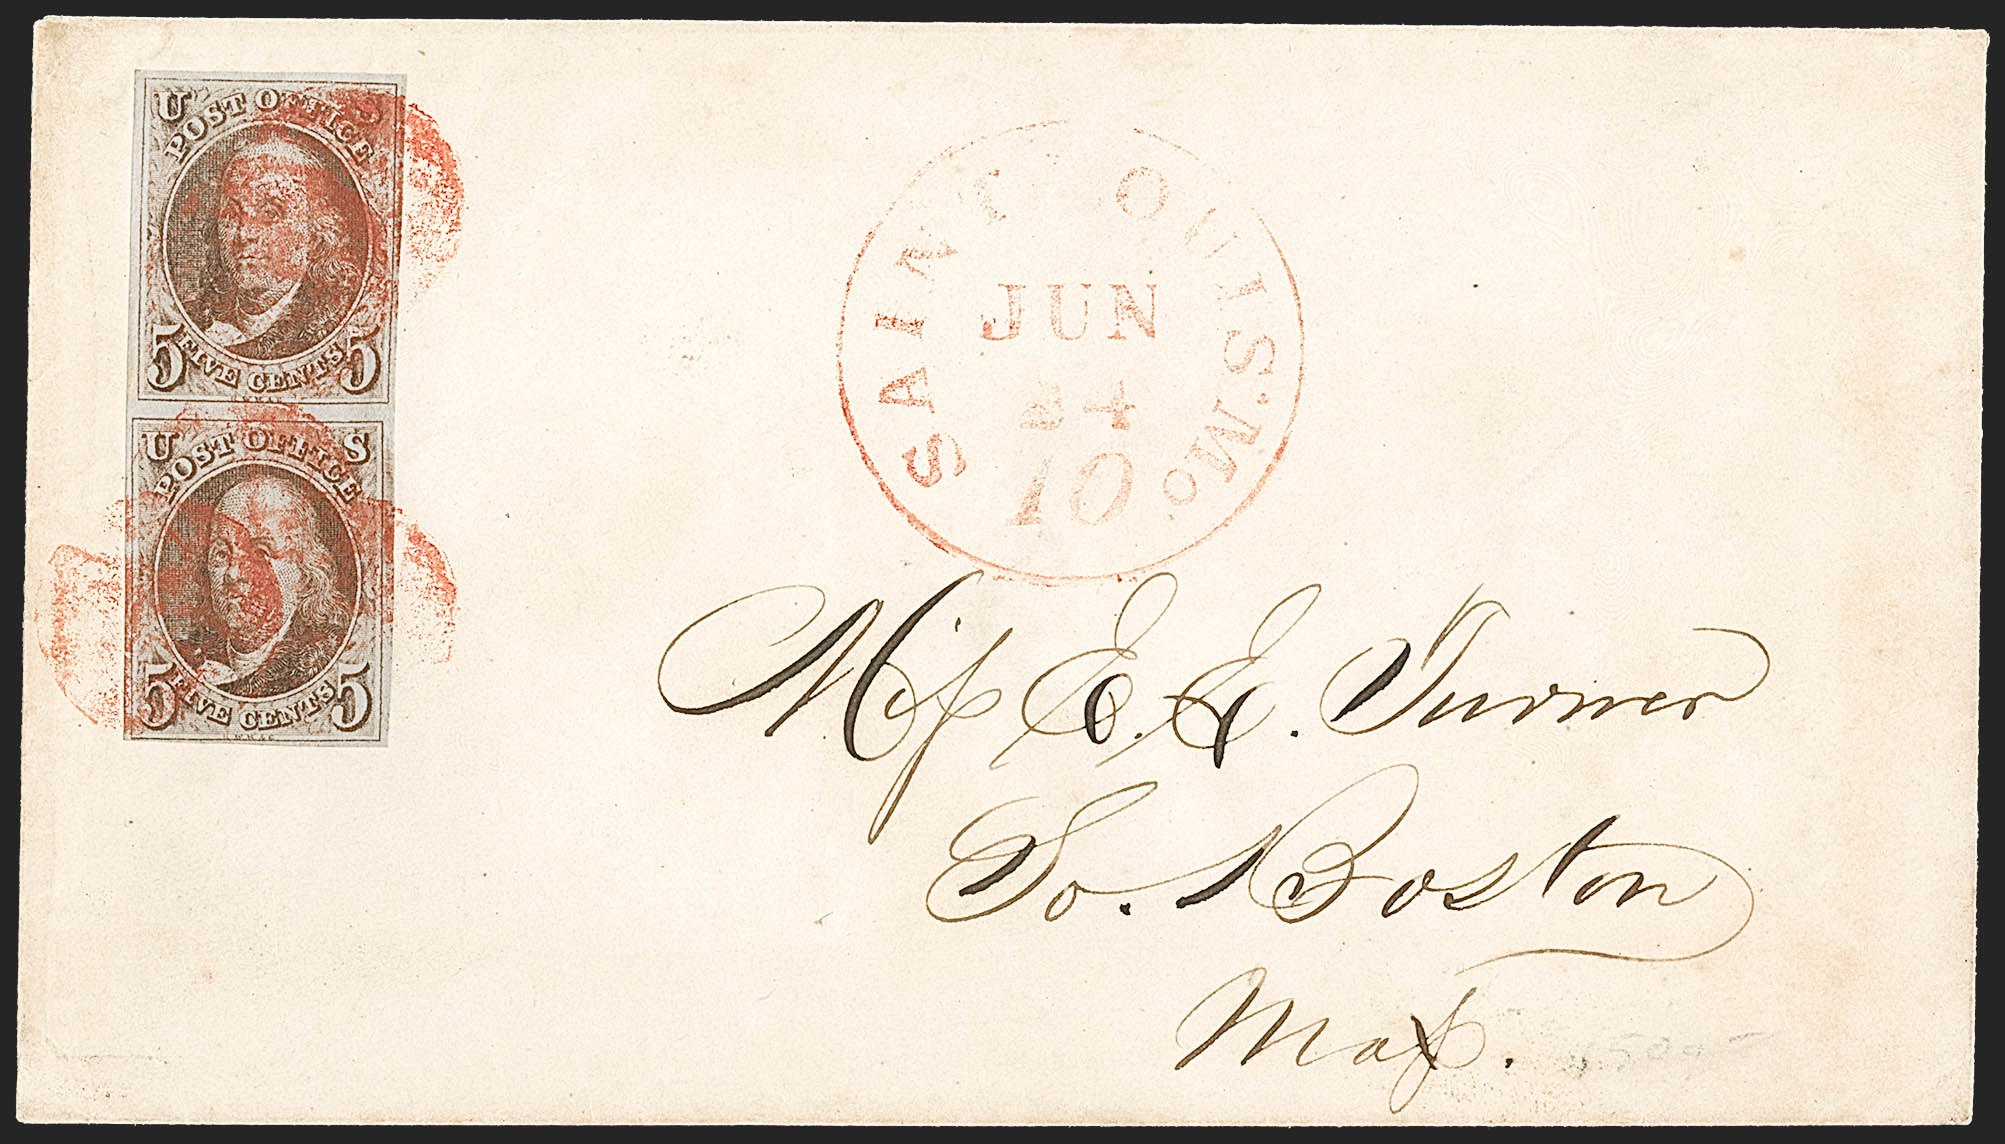 U S
POST OFFICE
5 FIVE CENTS 5
U S
POST OFFICE
5 FIVE CENTS 5
SAINT LOUIS. Mo.
JUN
24
10
Miſs E. E. Turner
So. Boston
Maſs.